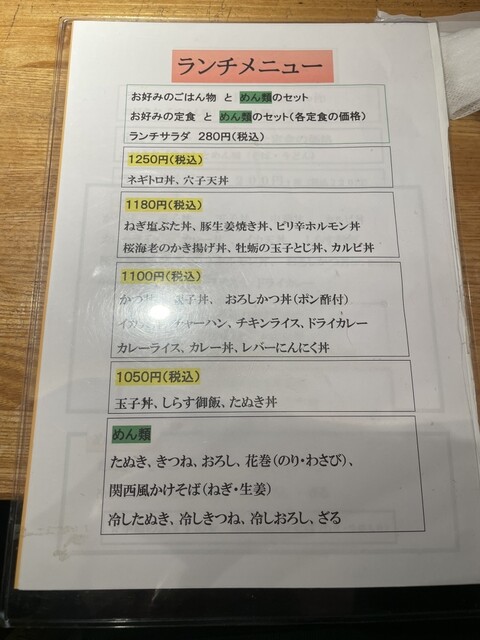 ランチメニュー
お好みのごはん物 と めん類のセット
お好みの定食 と めん類のセット(各定食の価格)
ランチサラダ 280円(税込)
1250円(税込)
ネギトロ丼、穴子天丼
1180円(税込)
ねぎ塩ぶた丼、豚生姜焼き丼、ピリ辛ホルモン丼
桜海老のかき揚げ丼、牡蛎の玉子とじ丼、カルビ丼
1100円(税込)
かつ丼、 子丼、 おろしかつ丼(ポン酢付)
チャーハン、チキンライス、ドライカレー
カレーライス、カレー丼、レバーにんにく丼
1050円(税込)
玉子丼、しらす御飯、たぬき丼
めん類
たぬき、きつね、おろし、花巻(のり・わさび)、
関西風かけそば(ねぎ・生姜)
冷したぬき、冷しきつね、冷しおろし、ざる